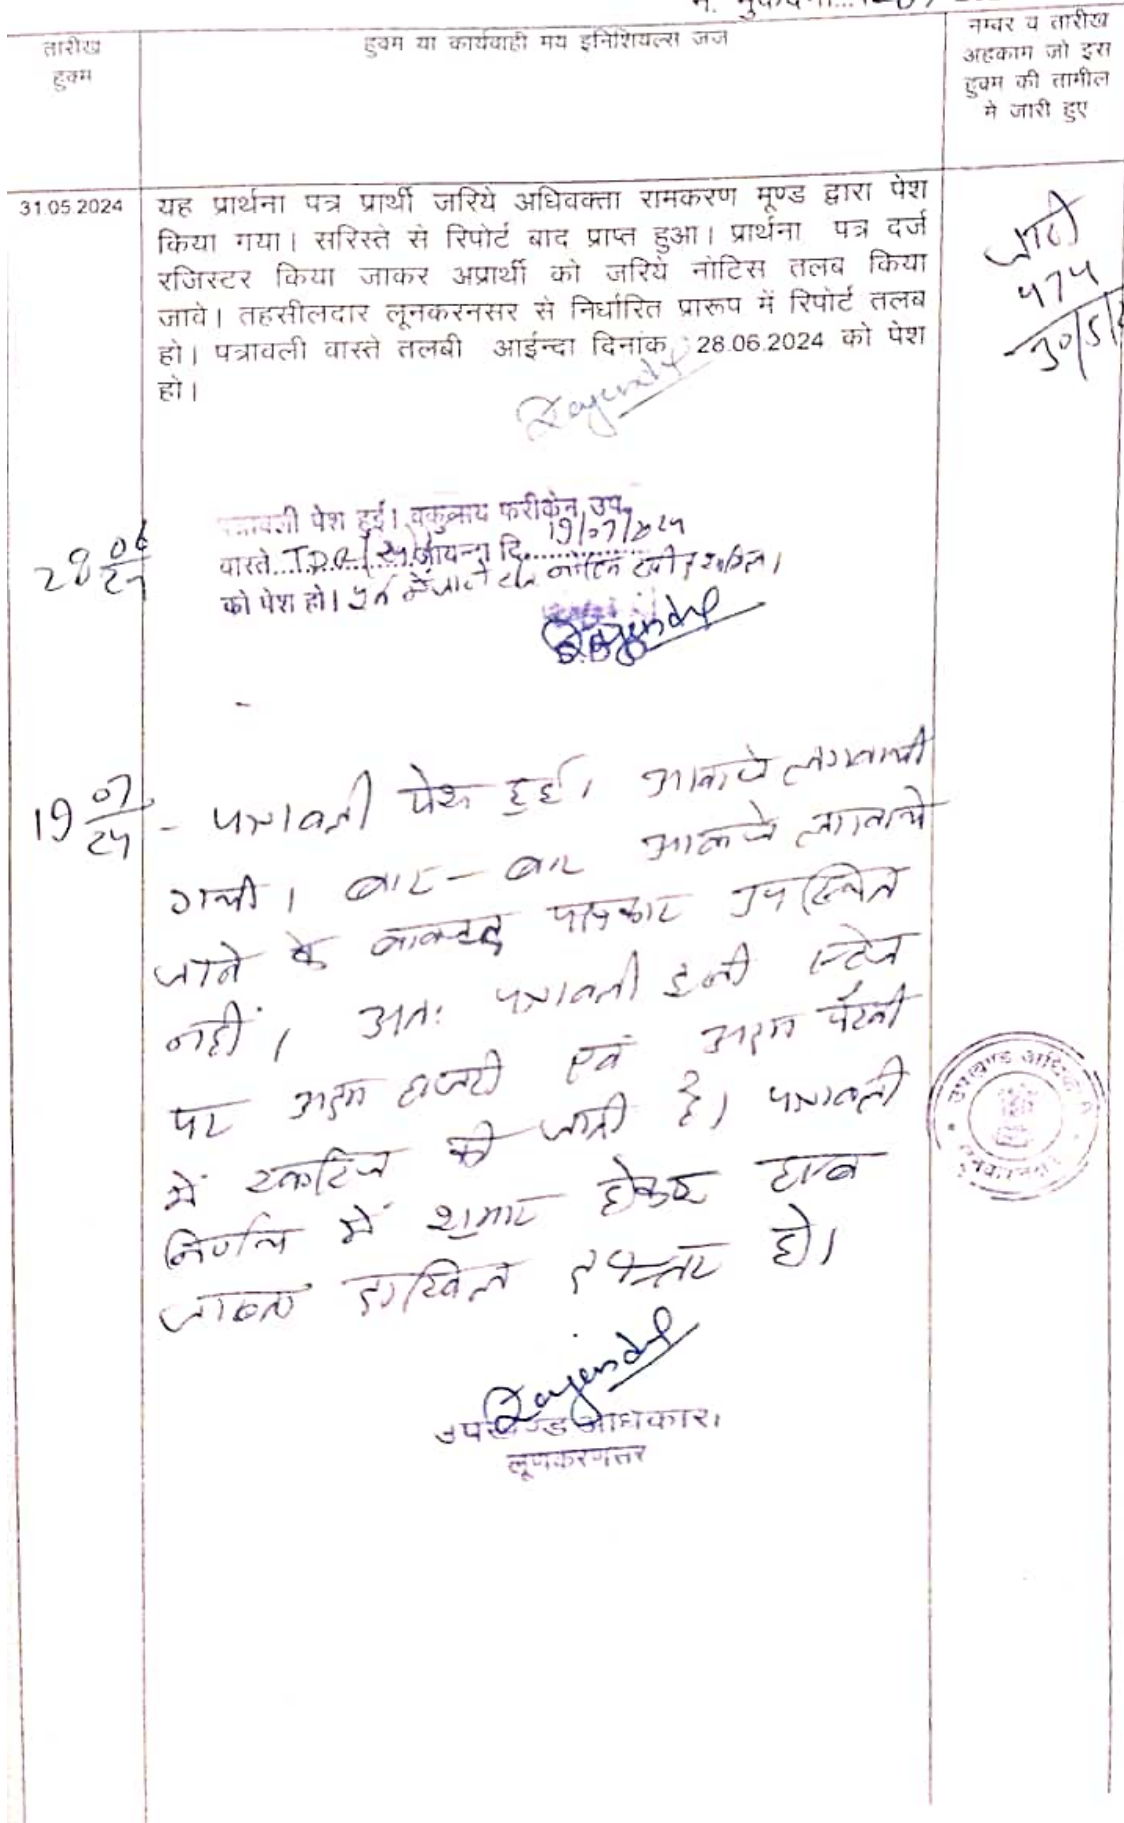 नं. मुकदमा...
तारीख
हुक्म
हुक्म या कार्यवाही मय इनिशियल्स जज
नम्बर व तारीख
अहकाम जो इस
हुक्म की तामील
मे जारी हुए
31.05.2024
यह प्रार्थना पत्र प्रार्थी जरिये अधिवक्ता रामकरण मूण्ड द्वारा पेश
किया गया। सरिस्ते से रिपोर्ट बाद प्राप्त हुआ। प्रार्थना पत्र दर्ज
रजिस्टर किया जाकर अप्रार्थी को जरिये नोटिस तलब किया
जावे। तहसीलदार लूनकरनसर से निर्धारित प्रारूप में रिपोर्ट तलब
हो। पत्रावली वास्ते तलबी आईन्दा दिनांक 28.06.2024 को पेश
हो।
जारी
474
30/5/
Rajendra
28 06/24
पत्रावली पेश हुई। वकुलाय फरीकेन उप.
वास्ते....T.D.R......आयन्दा दि. 19/07/2024
को पेश हो।
Rajendra
S.D.O
19 07/24
- पत्रावली पेश हुई। आवाजे लगवायी
गयी। बार-बार आवाजे लगवाये
जाने के बावजूद पक्षकार उपस्थित
नहीं। अतः पत्रावली इसी स्टेज
पर अदम हाजरी एवं अदम पैरवी
में खारिज की जाती है। पत्रावली
निर्णय में शुमार होकर बाद
जाब्ता दाखिल दफ्तर हो।
उपखण्ड अधिकारी
Rajendra
उपखण्ड अधिकारी
लूणकरणसर